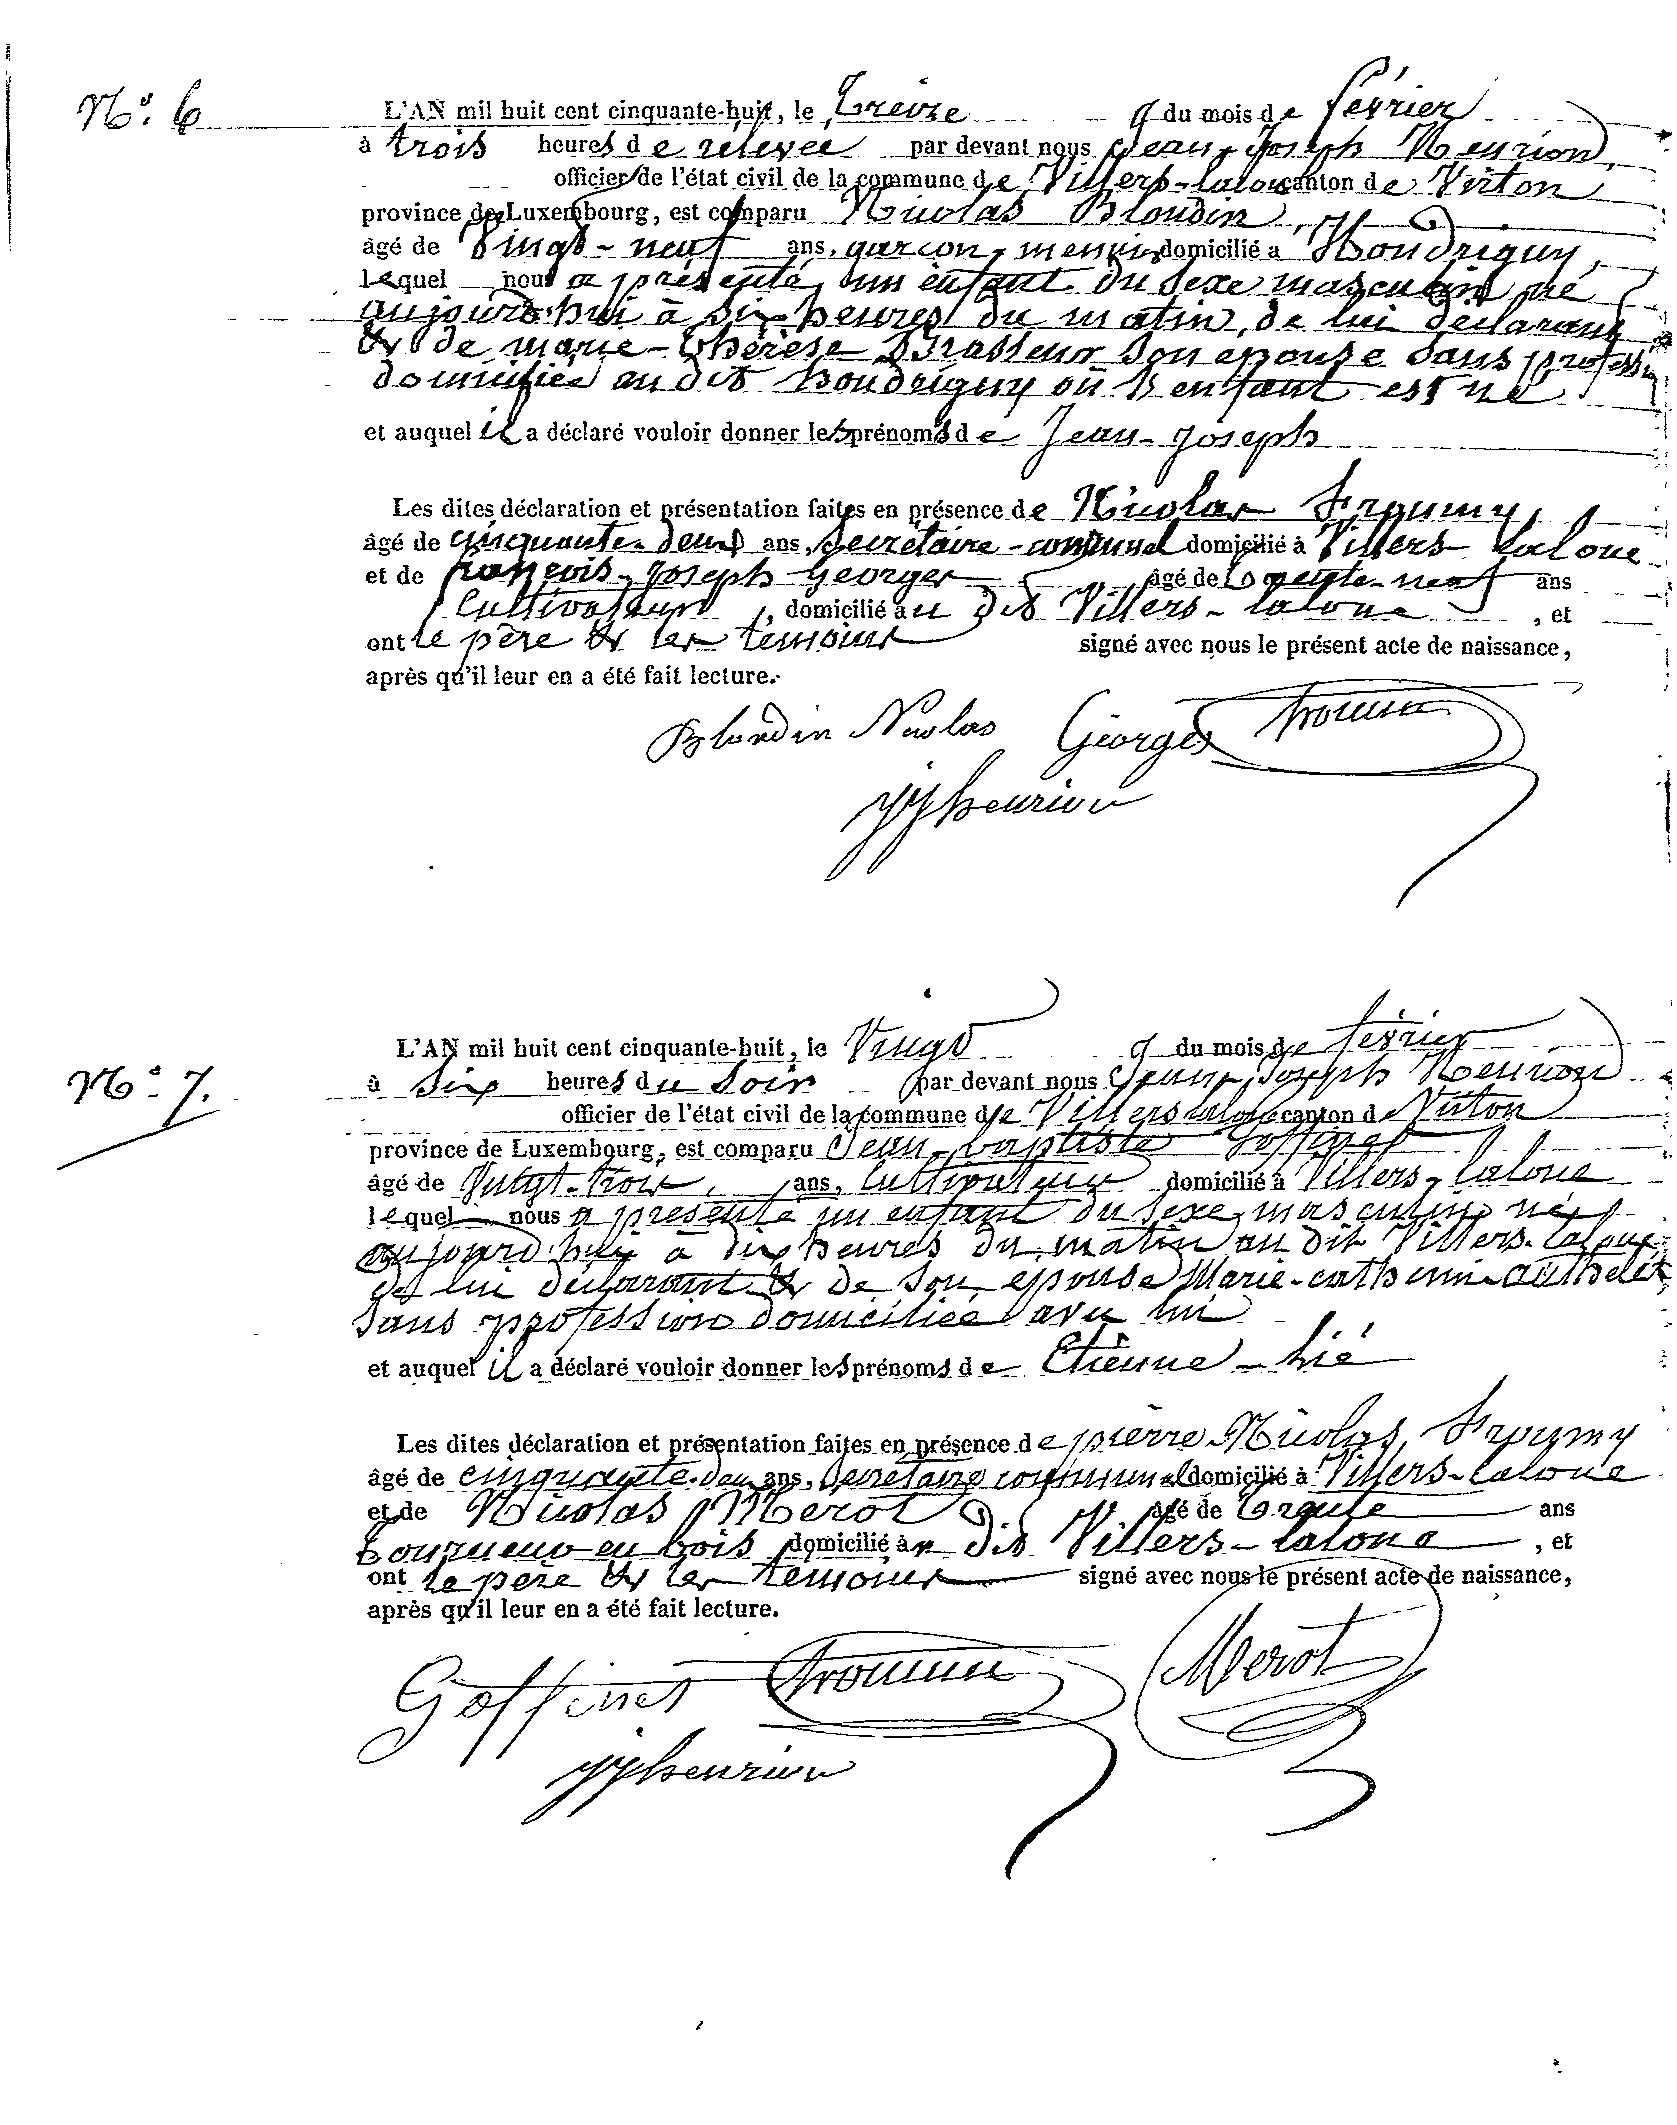 N.º 6
L'AN mil huit cent cinquante-huit, le treize du mois de février
à trois heures de relevée par devant nous Jean-Joseph Henrion,
officier de l'état civil de la commune de Villers-laloue canton de Virton
province de Luxembourg, est comparu Nicolas Blondin,
âgé de vingt-neuf ans, garçon-meunier domicilié à Houdrigny,
lequel nous a présenté un enfant du sexe masculin né
aujourd'hui à six heures du matin, de lui déclarant
& de marie-thérèse Brasseur son épouse sans profession
domiciliée au dit houdrigny où l'enfant est né
et auquel il a déclaré vouloir donner les prénoms de Jean-Joseph
Les dites déclaration et présentation faites en présence de Nicolas
âgé de cinquante-deux ans, secrétaire-communal domicilié à Villers-laloue
et de françois-joseph Georges âgé de trente-neuf ans
cultivateur, domicilié au dit Villers-laloue, et
ont le père & les témoins signé avec nous le présent acte de naissance,
après qu'il leur en a été fait lecture.
Blondin Nicolas Georges
jjhenrion
N.º 7.
L'AN mil huit cent cinquante-huit, le vingt du mois de février
à six heures du soir par devant nous Jean-Joseph Henrion
officier de l'état civil de la commune de Villers-laloue canton de Virton
province de Luxembourg, est comparu Jean-baptiste Goffinet
âgé de vingt-trois, ans, cultivateur domicilié à Villers-laloue
lequel nous a présenté un enfant du sexe masculin né
aujourd'hui à dix heures du matin au dit Villers-laloue,
de lui déclarant & de son épouse Marie-catherine
sans profession domiciliée avec lui
et auquel il a déclaré vouloir donner les prénoms de Etienne-lié
Les dites déclaration et présentation faites en présence de pierre Nicolas
âgé de cinquante-deux ans, secrétaire communal domicilié à Villers-laloue
et de Nicolas Merot âgé de trente ans
tourneur en bois domicilié au dit Villers-laloue, et
ont le père & les témoins signé avec nous le présent acte de naissance,
après qu'il leur en a été fait lecture.
Goffinet Merot
jjhenrion